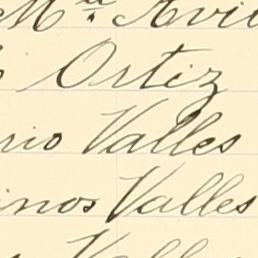 Ma. Avil
Ortiz
rio Valles
inos Valles